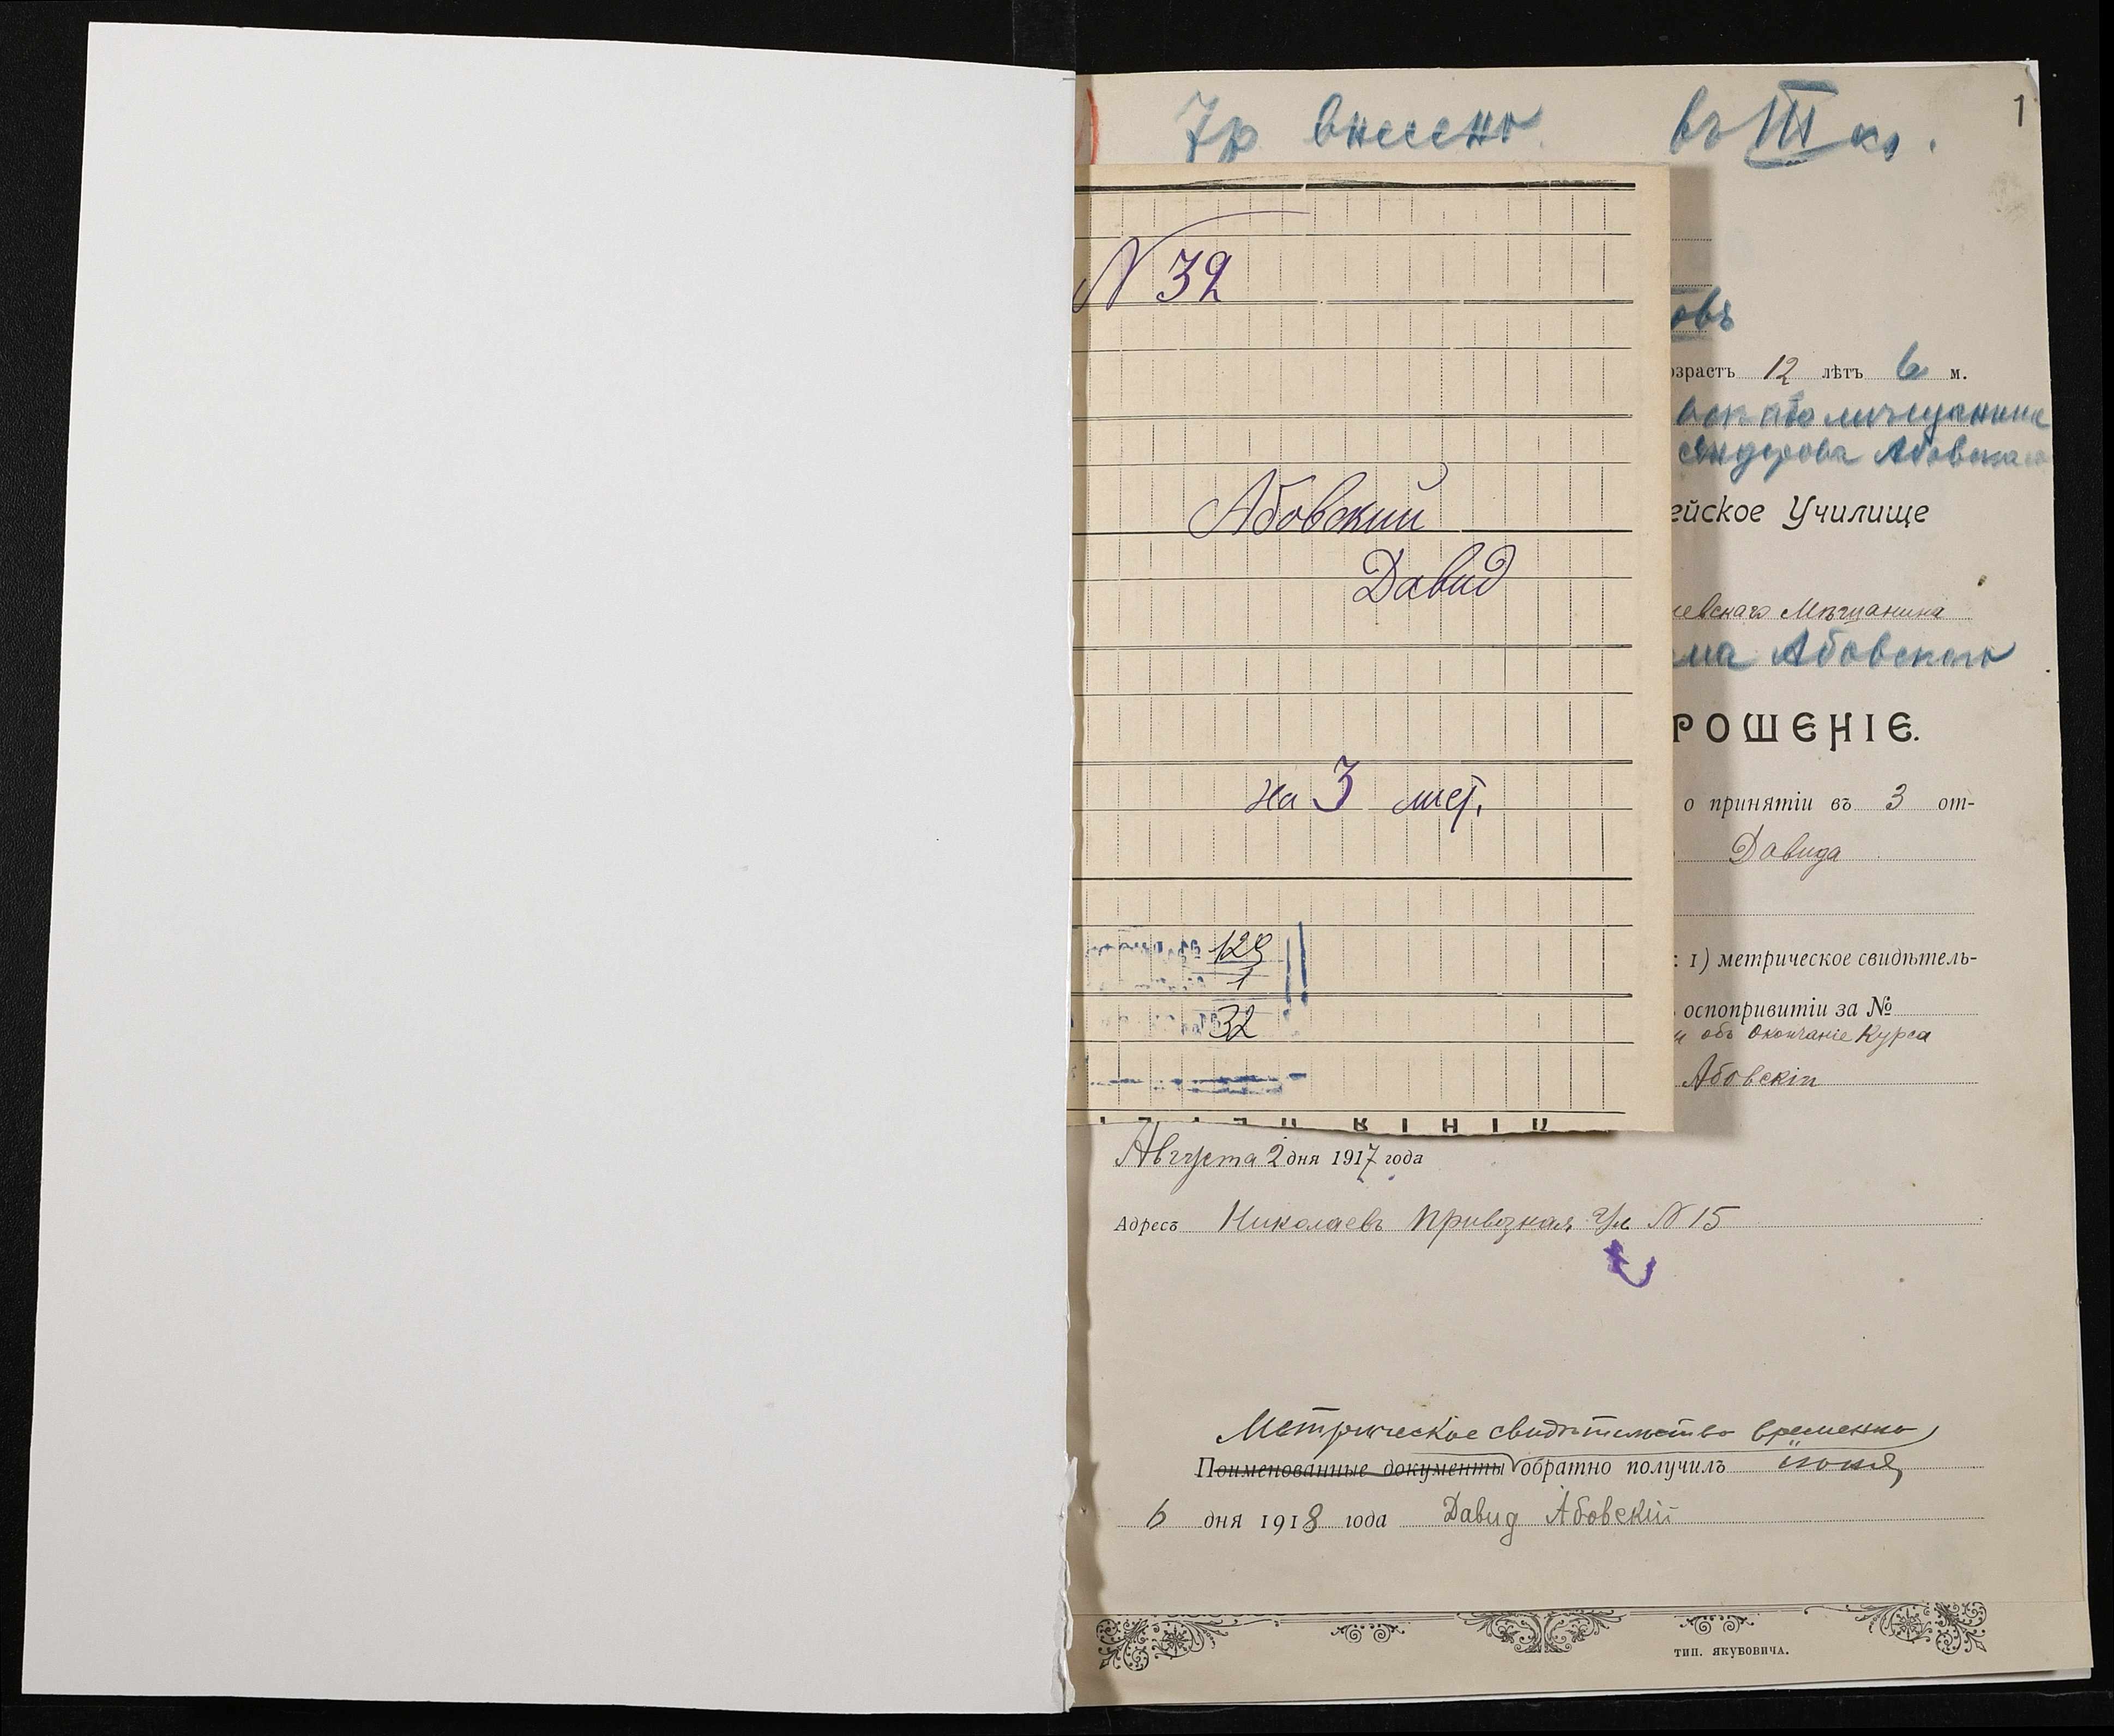 1
7р внесено въ III кл.
N 32
овъ
озрастъ 12 лѣтъ 6 м.
мѣщанина
Абовскаго
ейское Училище
Абовский
Давид
евскаго Мѣщанина
ма Абовского
РОШЕНІЕ.
на 3 лист.
о принятіи въ 3 от-
Давида
: 1) метрическое свидѣтель-
129
1
32
оспопривитіи за №
и объ Окончаніе Курса
Абовскій
Августа 2 дня 1917 года
Адресъ Николаевъ Привозная Ул N 15
Метрическое свидѣтельство временно
Поименованные документы обратно получилъ
6 дня 1918 года Давид Абовскій
ТИП. ЯКУБОВИЧА.